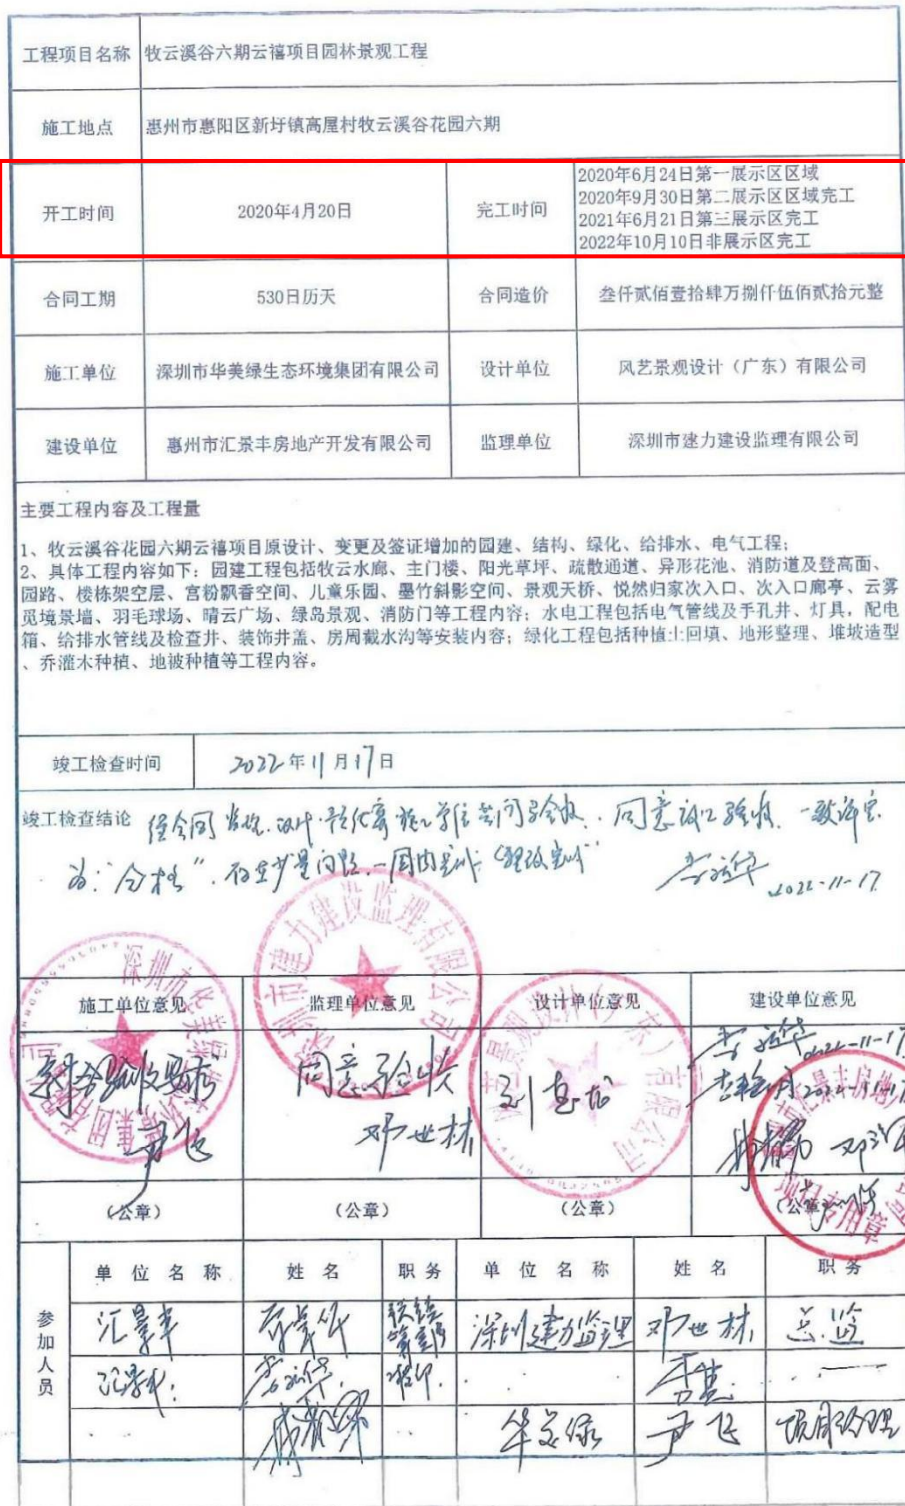 工程项目名称 牧云溪谷六期云禧项目园林景观工程
施工地点 惠州市惠阳区新圩镇高屋村牧云溪谷花园六期
开工时间 2020年4月20日 完工时间
2020年6月24日第一展示区区域
2020年9月30日第二展示区区域完工
2021年6月21日第三展示区完工
2022年10月10日非展示区完工
合同工期 530日历天 合同造价 叁仟贰佰壹拾肆万捌仟伍佰贰拾元整
施工单位 深圳市华美绿生态环境集团有限公司 设计单位 风艺景观设计（广东）有限公司
建设单位 惠州市汇景丰房地产开发有限公司 监理单位 深圳市建力建设监理有限公司
主要工程内容及工程量
1、牧云溪谷花园六期云禧项目原设计、变更及签证增加的园建、结构、绿化、给排水、电气工程；
2、具体工程内容如下：园建工程包括牧云水廊、主门楼、阳光草坪、疏散通道、异形花池、消防道及登高面、
园路、楼栋架空层、宫粉飘香空间、儿童乐园、墨竹斜影空间、景观天桥、悦然归家次入口、次入口廊亭、云雾
觅境景墙、羽毛球场、晴云广场、绿岛景观、消防门等工程内容；水电工程包括电气管线及手孔井、灯具，配电
箱、给排水管线及检查井、装饰井盖、房周截水沟等安装内容；绿化工程包括种植土回填、地形整理、堆坡造型
、乔灌木种植、地被种植等工程内容。
竣工检查时间 2022年11月17日
竣工检查结论 同意竣工验收. 一致评定
为："合格". 存在少量问题. 一周内
2022-11-17
施工单位意见 监理单位意见 设计单位意见 建设单位意见
同意验收
邓世林
尹飞
2022-11-17
（公章） （公章） （公章） （公章）
项目专用章
参加人员
单位名称 姓名 职务 单位名称 姓名 职务
汇景丰 深圳建力监理 邓世林 总监
汇景丰
华美绿 尹飞 项目经理